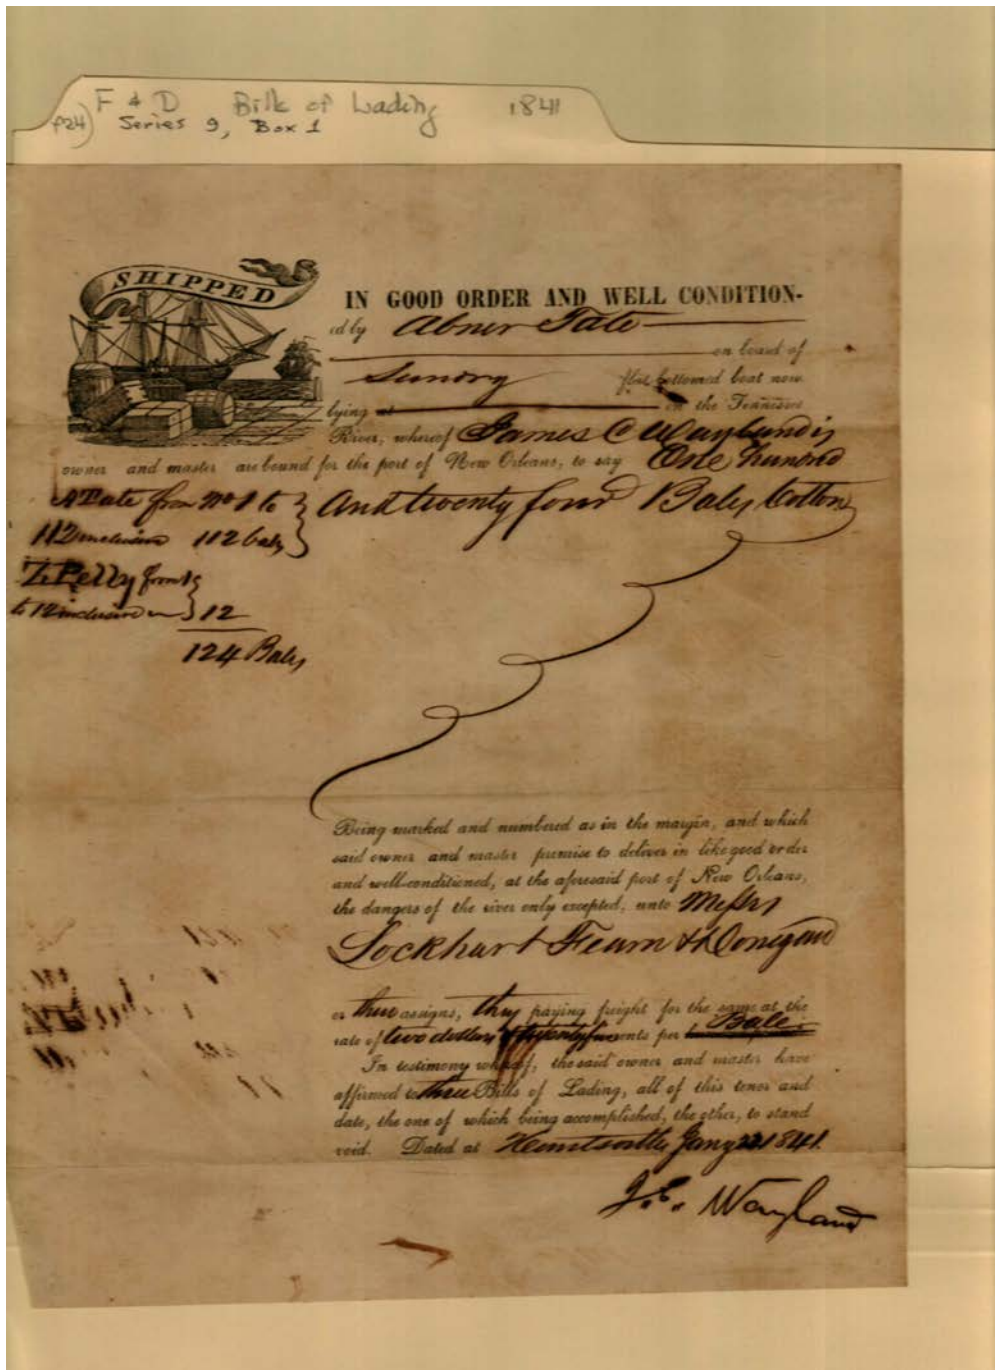 F & D Bills of Lading 1841
f24) Series 9, Box 1
SHIPPED
IN GOOD ORDER AND WELL CONDITION-
ed by Abner Tate
on board of
Sundry flat bottomed boat now
lying at on the Tennessee
River, whereof James C Wayland is
owner and master are bound for the port of New Orleans, to say One hundred
And twenty four Bales Cotton
A Tate from No 1 to
112 inclusive 112 bales
Z. Petty from 1
to 12 inclusive 12
124 Bales
Being marked and numbered as in the margin, and which
said owner and master promise to deliver in like good order
and well-conditioned, at the aforesaid port of New Orleans,
the dangers of the river only excepted, unto Messrs
Lockhart Fearn & Donegan
or their assigns, they paying freight for the same at the
rate of two dollars & twenty five cents per Bale
In testimony whereof, the said owner and master have
affirmed to three Bills of Lading, all of this tenor and
date, the one of which being accomplished, the other, to stand
void. Dated at Huntsville Jany 22 1841.
J. C. Wayland